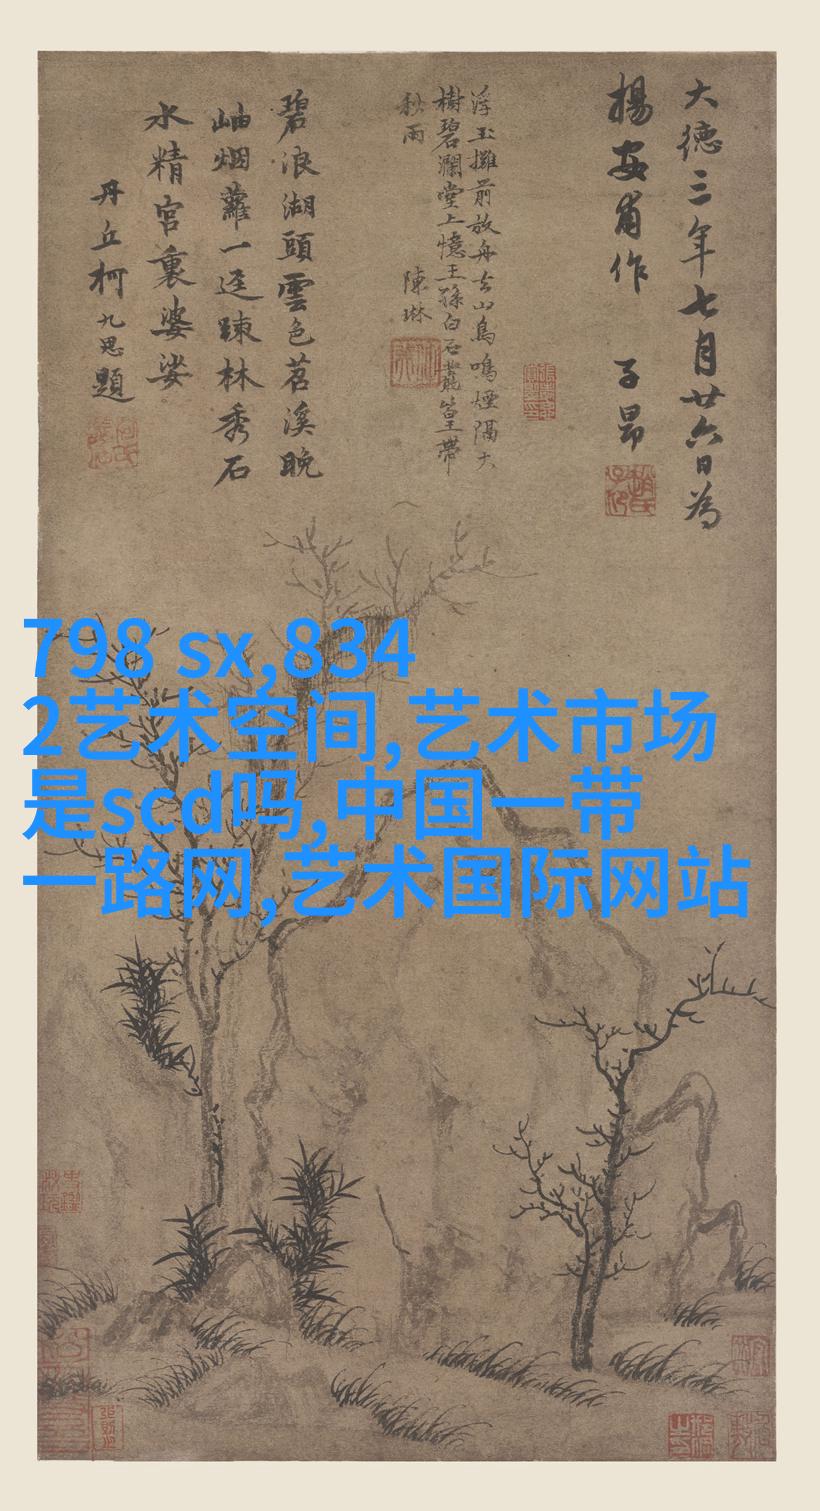 大德三年七月廿六日為
楊安甫作 子昂
浮玉攤前放舟去山鳥鳴煙隔大
樹碧瀾堂上憶王孫白石叢篁帶
秋雨 陳琳
碧浪湖頭雲色茗溪晚
岫烟蘿一逕踈林秀石
水精宮裏婆娑
丹丘柯九思題
798 sx,834
2艺术空间,艺术市场
是scd吗,中国一带
一路网,艺术国际网站